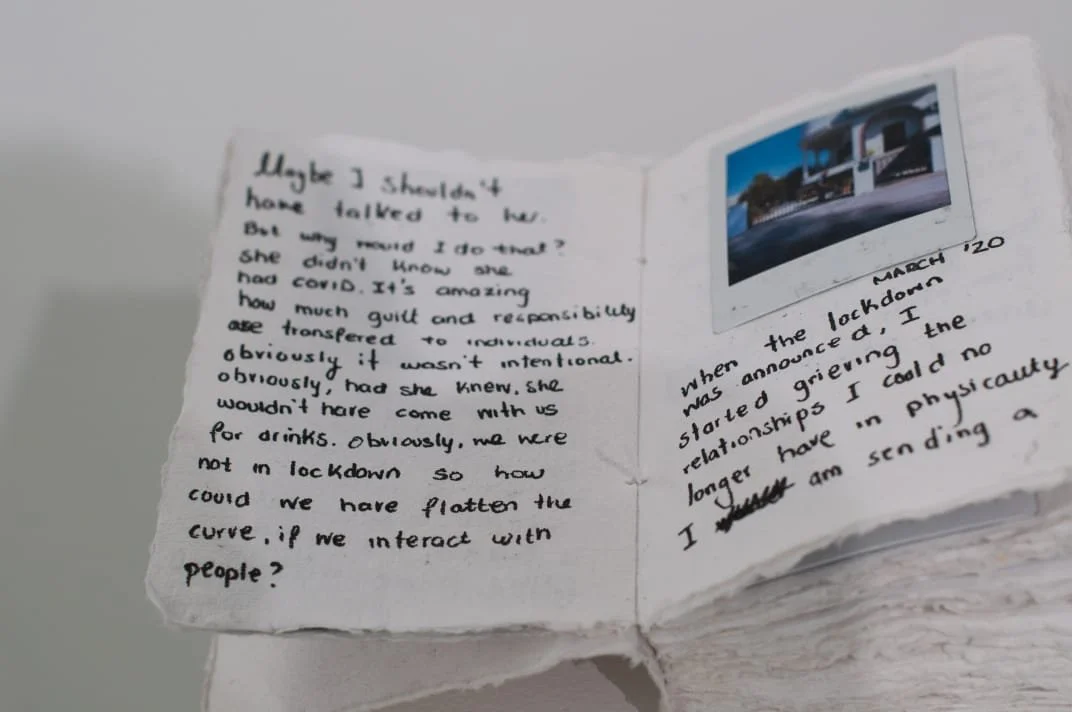 Maybe I shouldn't
have talked to her.
But why would I do that?
she didn't know she
had covid. It's amazing
how much guilt and responsibility
are transfered to individuals.
obviously it wasn't intentional.
obviously, had she knew, she
wouldn't have come with us
for drinks. Obviously, we were
not in lockdown so how
could we have flatten the
curve, if we interact with
people?
MARCH '20
when the lockdown
was announced, I
started grieving the
relationships I could no
longer have in physicality
I am sending a